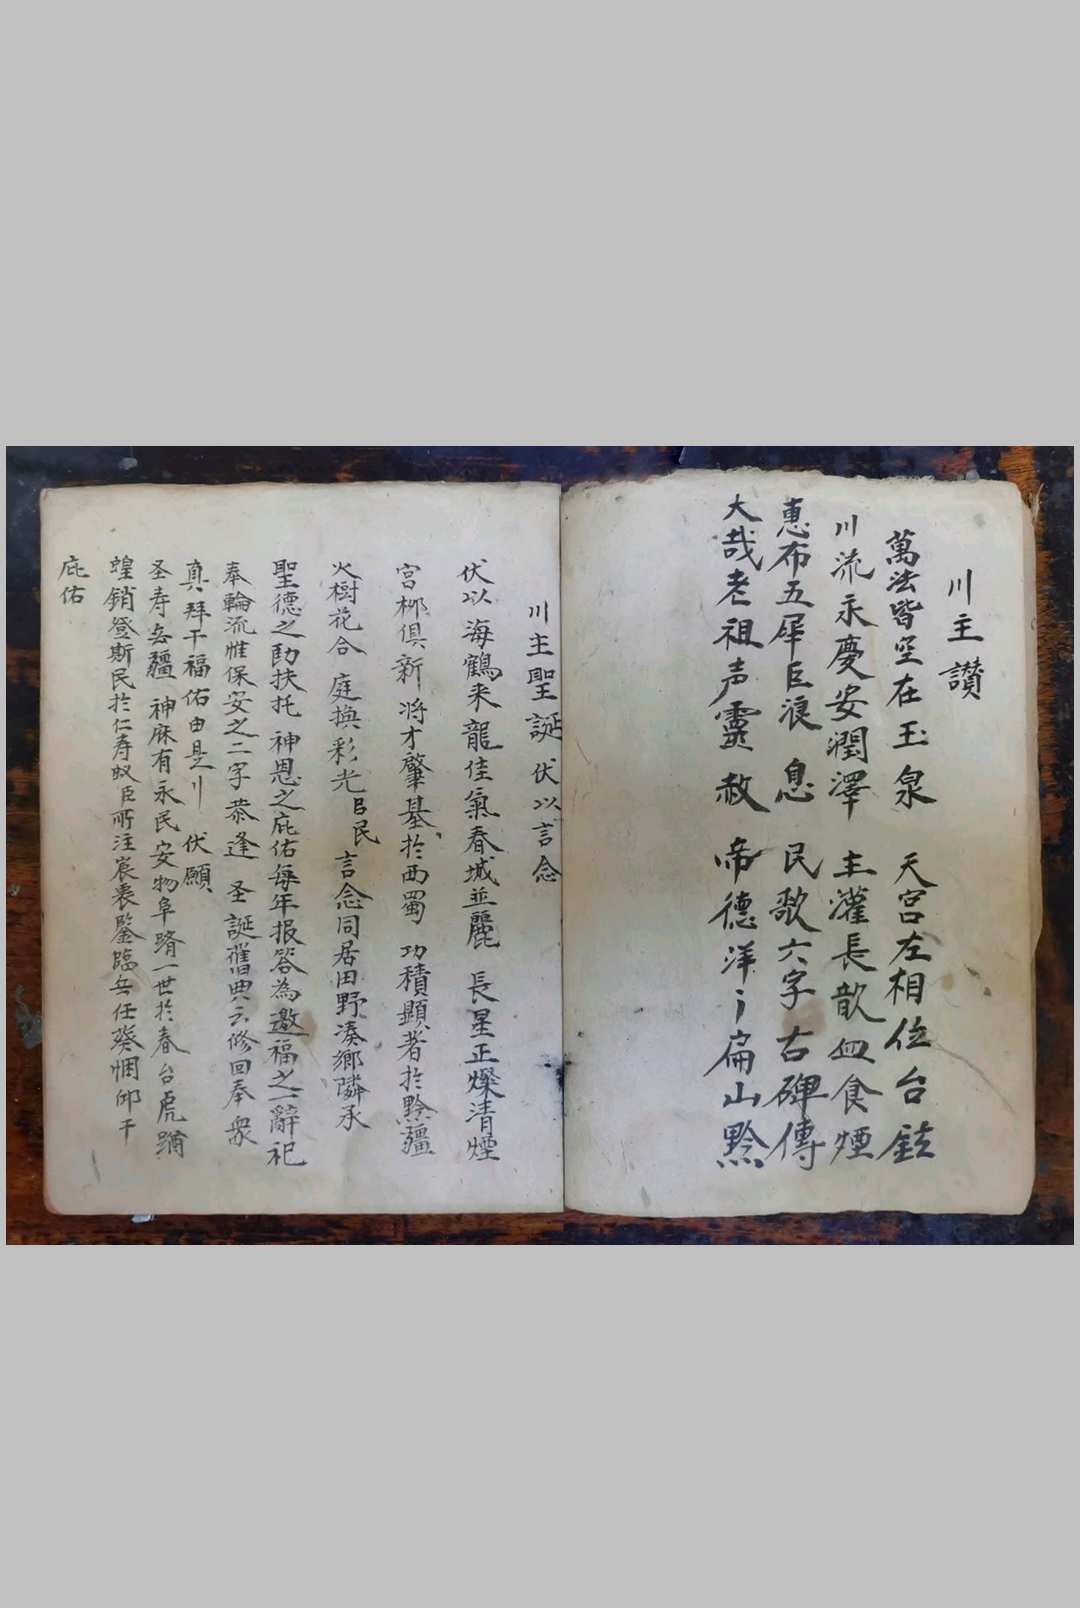 川主讚
萬法皆空在玉泉 天宮左相位台鉉
川流永慶安潤澤 主灌長歆血食煙
惠布五犀巨浪息 民歌六字古碑傳
大哉老祖声靈赦 帝德洋洋扁山黔
川主聖誕 伏以言念
伏以海鶴来龍佳氣春城並麗 長星正燦清煙
宮柳俱新 将才肇基於西蜀 功積顯著於黔疆
火樹花合 庭換彩光 民 言念同居田野湊鄉隣承
聖德之 扶托 神恩之庇佑每年报答為邀福之一辭祀
奉輪流惟保安之二字恭逢 圣誕舊典云修回奉衆
真拜干福佑由是 伏願
圣寿无疆 神庥有永民安物阜 一世於春台虎
蝗銷登斯民於仁寿 臣所注宸表鑒臨无任葵悃仰干
庇佑